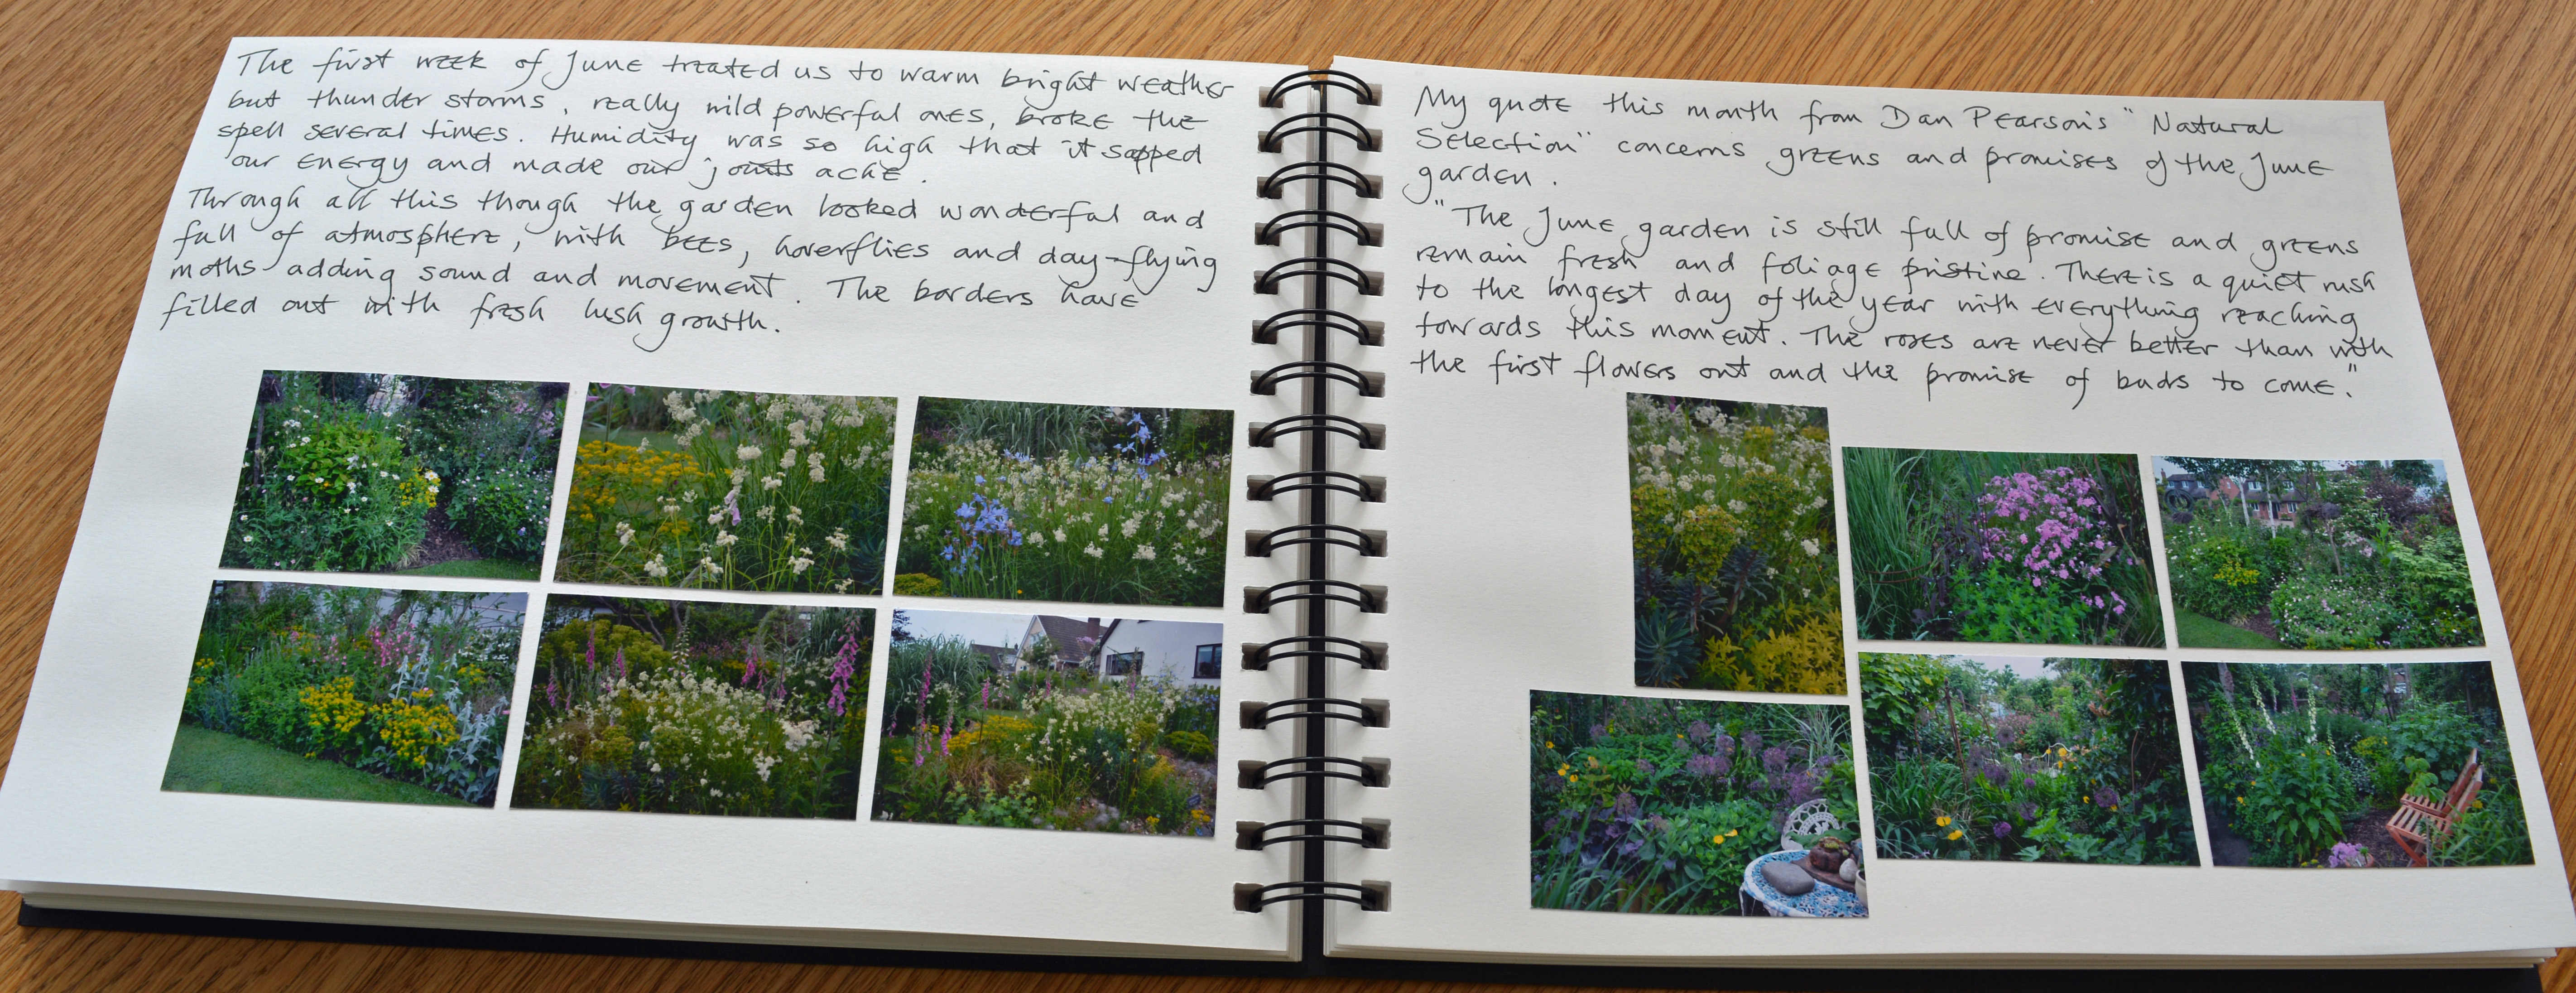 The first week of June treated us to warm bright weather
but thunder storms, really wild powerful ones, broke the
spell several times. Humidity was so high that it sapped
our energy and made our joints ache.
Through all this though the garden looked wonderful and
full of atmosphere, with bees, hoverflies and day-flying
moths adding sound and movement. The borders have
filled out with fresh lush growth.
My quote this month from Dan Pearson's "Natural
Selection" concerns greens and promises of the June
garden.
"The June garden is still full of promise and greens
remain fresh and foliage pristine. There is a quiet rush
to the longest day of the year with everything reaching
towards this moment. The roses are never better than with
the first flowers out and the promise of buds to come."